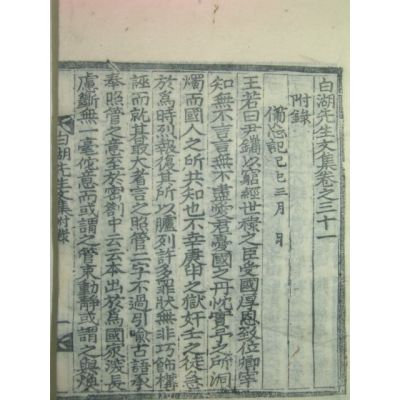 白湖先生文集卷之三十一
附錄
備忘記己巳三月 日
王若曰尹鑴以窮經世祿之臣受國厚恩致位卿宰
知無不言言無不盡愛君憂國之丹忱實予之所洞
燭而國人之所共知也不幸庚申之獄奸壬之徒急
於爲時烈報復其所以臚列許多罪狀無非巧飾構
誣而就其最大者言之照管二字不過引喩古語承
奉照管之意至於密劄中云云本出於爲國家深長
慮斷無一毫佗意而或謂之管束動靜或謂之與煥
白湖先生文集 附錄 一